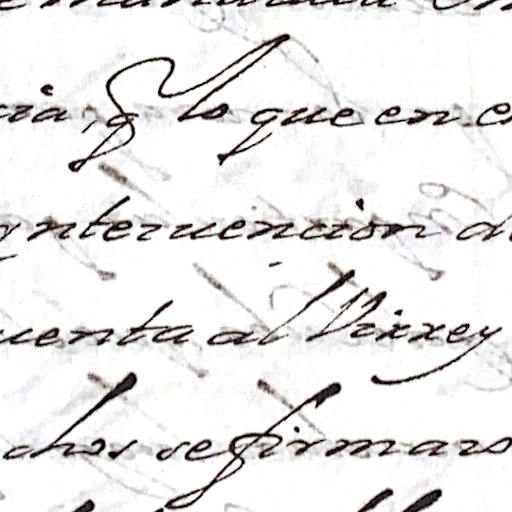 cia, q̃ lo que en e
ynteruencion d
uenta al Virrey
chos se firmaro